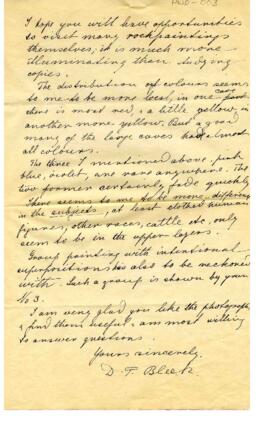 PWD-003
I hope you will have opportunities
to visit many rockpaintings
themselves; it is much more
illuminating than judging
copies.
The distribution of colours seems
to me to be more local, in one cave
there is most red, a little yellow, in
another more yellow. But a good
many of the large caves had almost
all colours.
The three I mentioned above, pink
blue, violet, are rare anywhere. The
two former certainly fade quickly
There seems to me to be more difference
in the subjects, at least clothed human
figures, other races, cattle etc. only
seem to be in the upper layers.
Group painting with intentional
superpositions has also to be reckoned
with. Such a group is shown by your
No 3.
I am very glad you like the photographs
& find them useful & am most willing
to answer questions.
Yours sincerely.
D. F. Bleek.